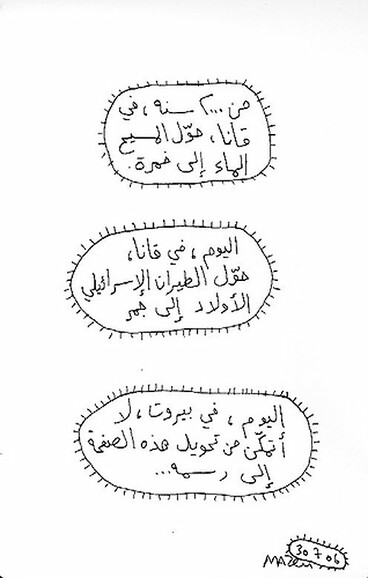 من ٢٠٠٠ سنه، في
قانا، حوّل المسيح
الماء إلى خمرة.
اليوم، في قانا،
حوّل الطيران الإسرائيلي
الأولاد إلى جمر
اليوم، في بيروت، لا
أتمكّن من تحويل هذه الصفحة
إلى رسمه...
30 7 06
MAZEN